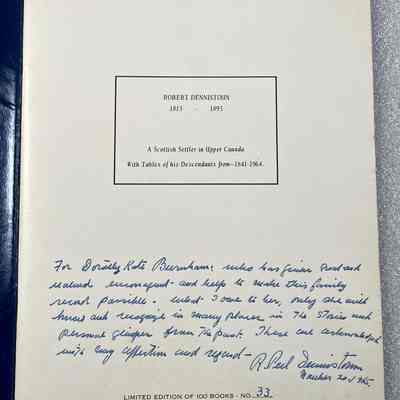 ROBERT DENNISTOUN
1815 - 1895
A Scottish Settler in Upper Canada
With Tables of his Descendants from-1841-1964.
For Dorothy Kate Burnham: who has given and
and help to make this family
record possible. what I owe to her, only she will
know and recognize in many places in the and
personal from the past. These are acknowledged
with my affection and regard-
LIMITED EDITION OF 100 BOOKS - NO. 33